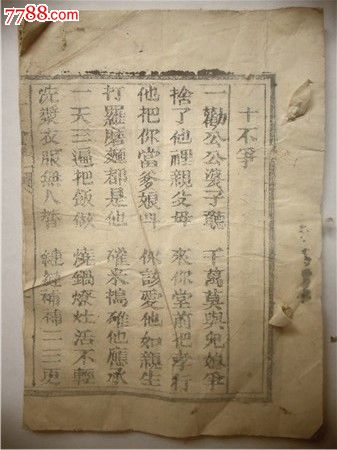 7788.com
十不爭
一勸公公婆子聽 千萬莫與兒媳爭
捨了他裡親父母 來你堂前把孝行
他把你當爹娘叫 你該愛他如親生
打羅磨麵都是他 碓米搗碓他應承
一天三遍把飯做 燒鍋燎灶活不輕
洗漿衣服無人替 縫縫補補二三更